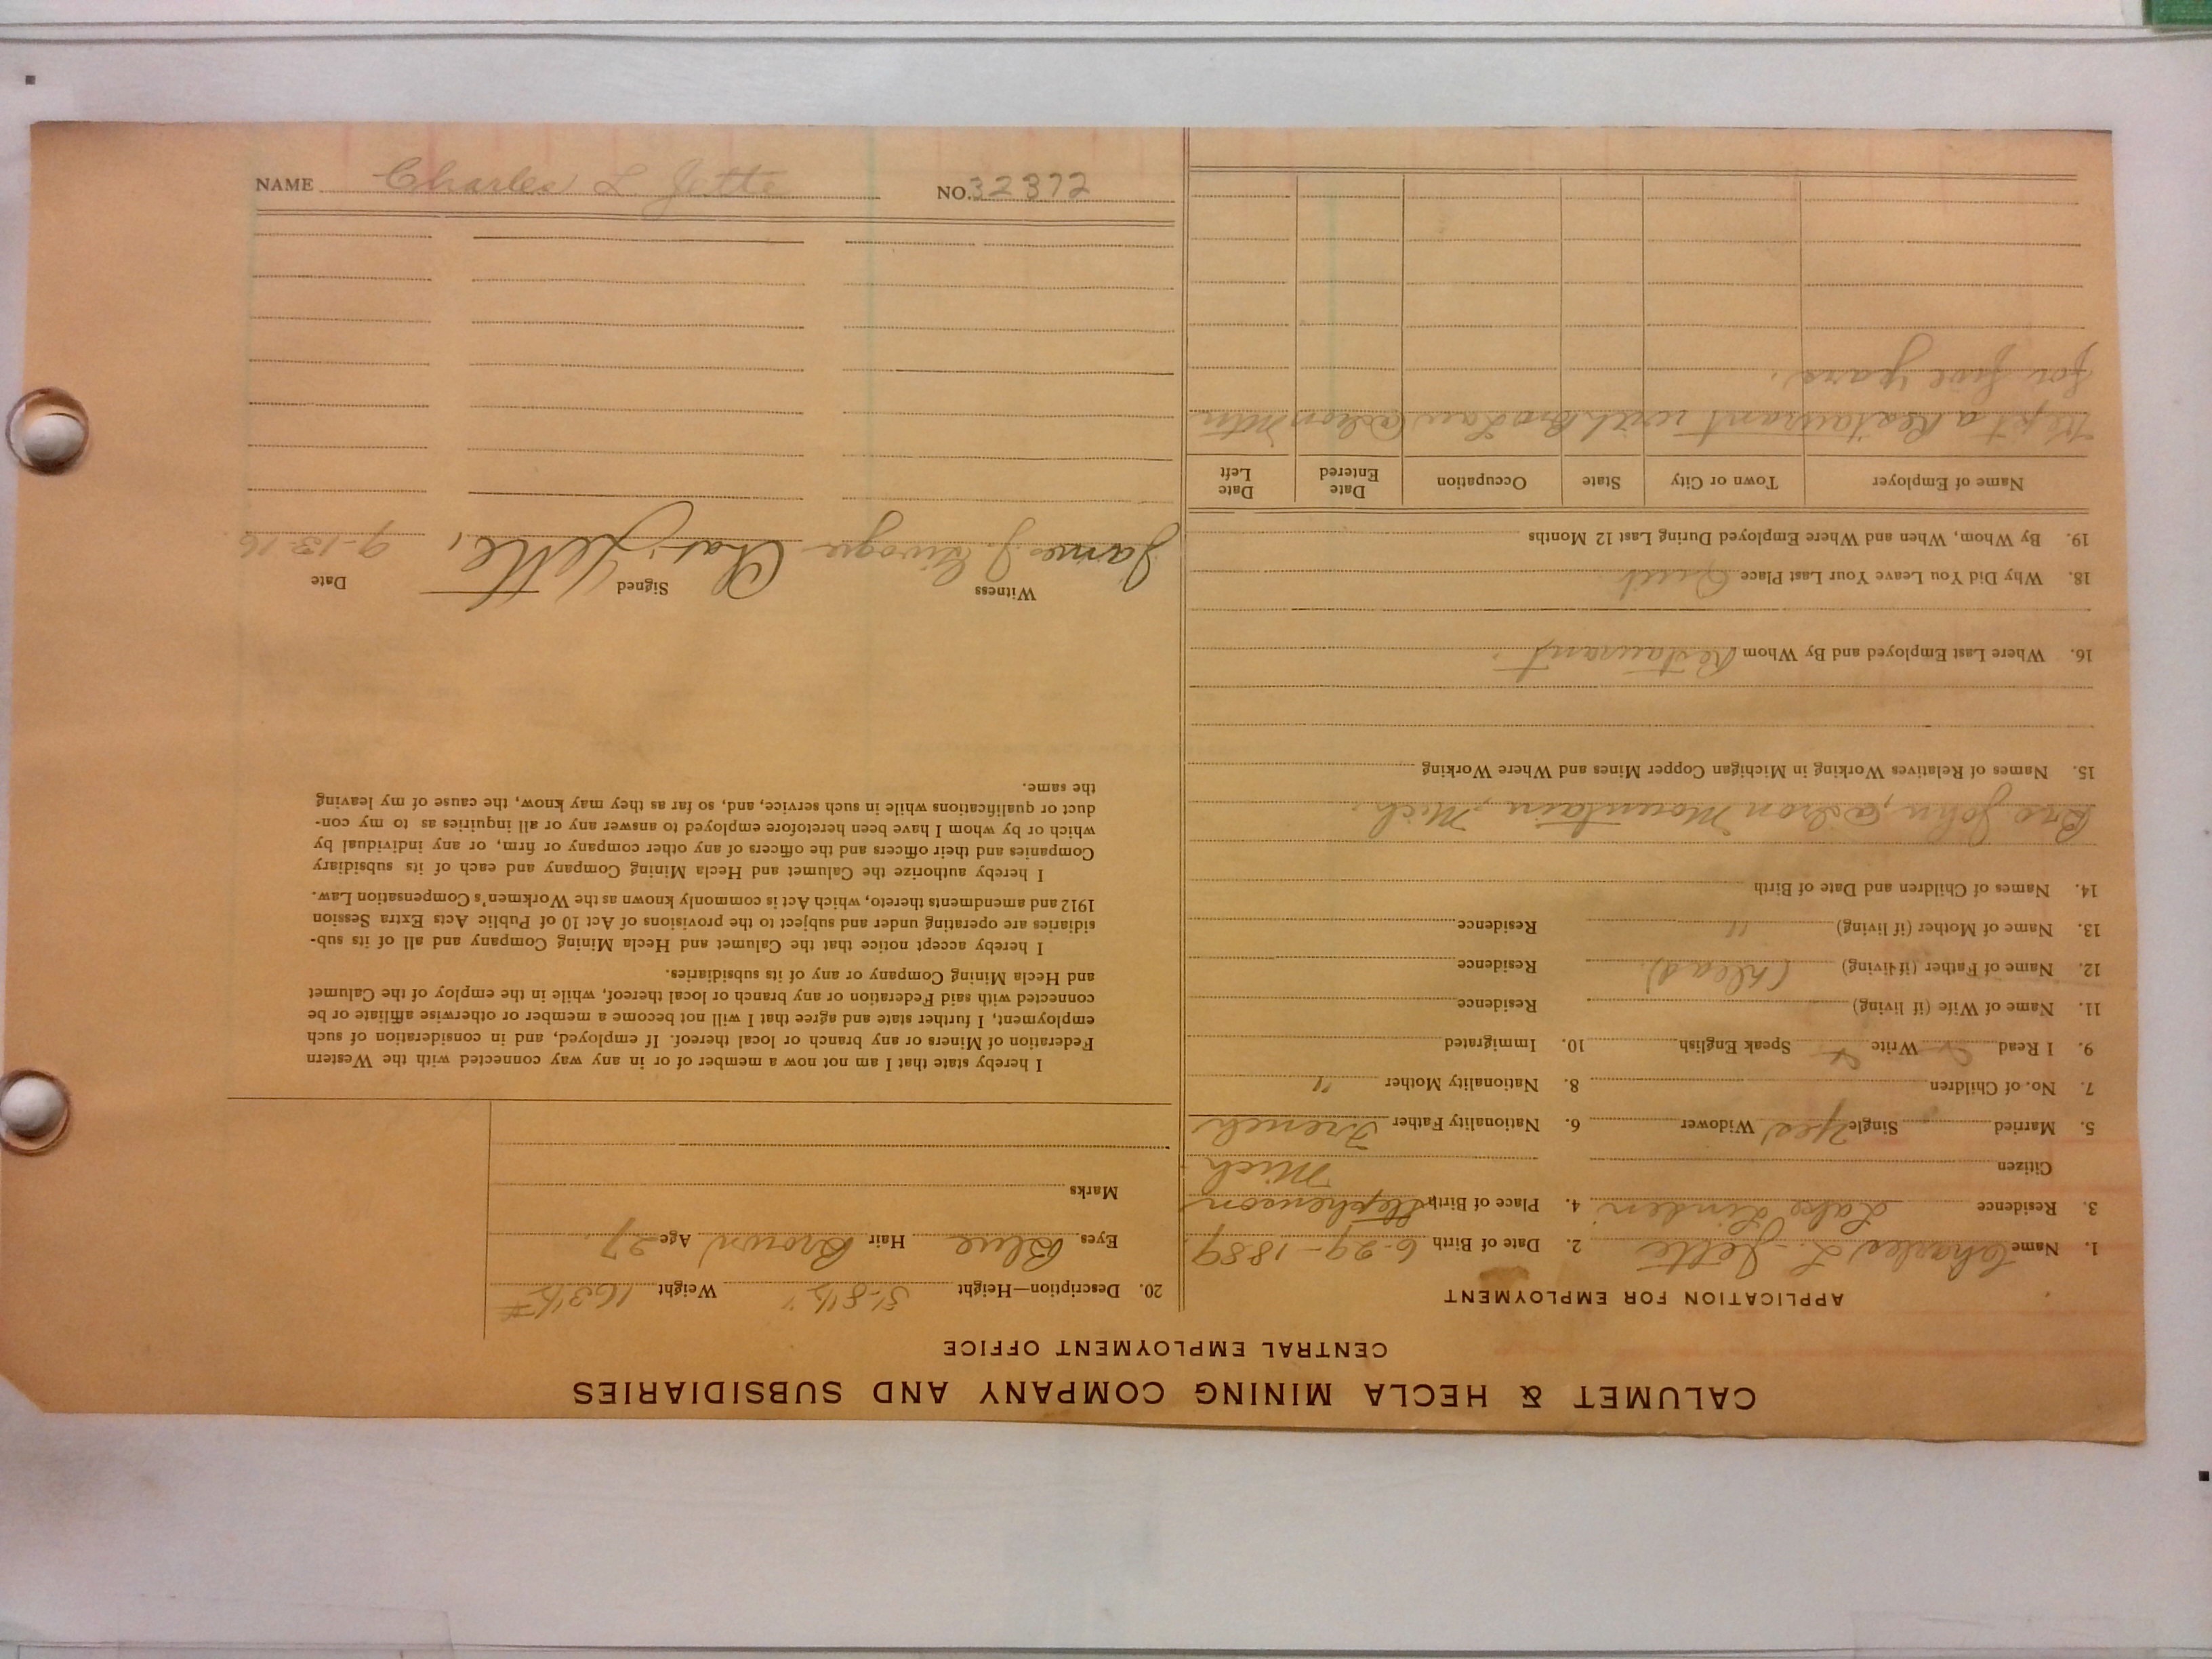 CALUMET & HECLA MINING COMPANY AND SUBSIDIARIES
CENTRAL EMPLOYMENT OFFICE
APPLICATION FOR EMPLOYMENT
1. Name Charles L. Jette 2. Date of Birth 6-29-1889
3. Residence Lake Linden 4. Place of Birth Stephenson
Citizen Mich.
5. Married Single Yes Widower 6. Nationality Father French
7. No. of Children 8. Nationality Mother "
9. I Read Write Speak English 10. Immigrated
11. Name of Wife (if living) Residence
12. Name of Father (if living) (Dead) Residence
13. Name of Mother (if living) " Residence
14. Names of Children and Date of Birth
Bro John, @ Iron Mountain, Mich.
15. Names of Relatives Working in Michigan Copper Mines and Where Working
16. Where Last Employed and By Whom Restaurant.
18. Why Did You Leave Your Last Place Quit
19. By Whom, When and Where Employed During Last 12 Months
Name of Employer Town or City State Occupation Date Entered Date Left
Kept a Restaurant with Bro Law @ Iron Mtn
for five years.
20. Description—Height 5'-8½" Weight 163½#
Eyes Blue Hair Brown Age 27
Marks
I hereby state that I am not now a member of or in any way connected with the Western
Federation of Miners or any branch or local thereof. If employed, and in consideration of such
employment, I further state and agree that I will not become a member or otherwise affiliate or be
connected with said Federation or any branch or local thereof, while in the employ of the Calumet
and Hecla Mining Company or any of its subsidiaries.
I hereby accept notice that the Calumet and Hecla Mining Company and all of its sub-
sidiaries are operating under and subject to the provisions of Act 10 of Public Acts Extra Session
1912 and amendments thereto, which Act is commonly known as the Workmen's Compensation Law.
I hereby authorize the Calumet and Hecla Mining Company and each of its subsidiary
Companies and their officers and the officers of any other company or firm, or any individual by
which or by whom I have been heretofore employed to answer any or all inquiries as to my con-
duct or qualifications while in such service, and, so far as they may know, the cause of my leaving
the same.
Witness Signed Date
James J. Chas. Jette, 9-13-16
NAME Charles L. Jette NO. 32372